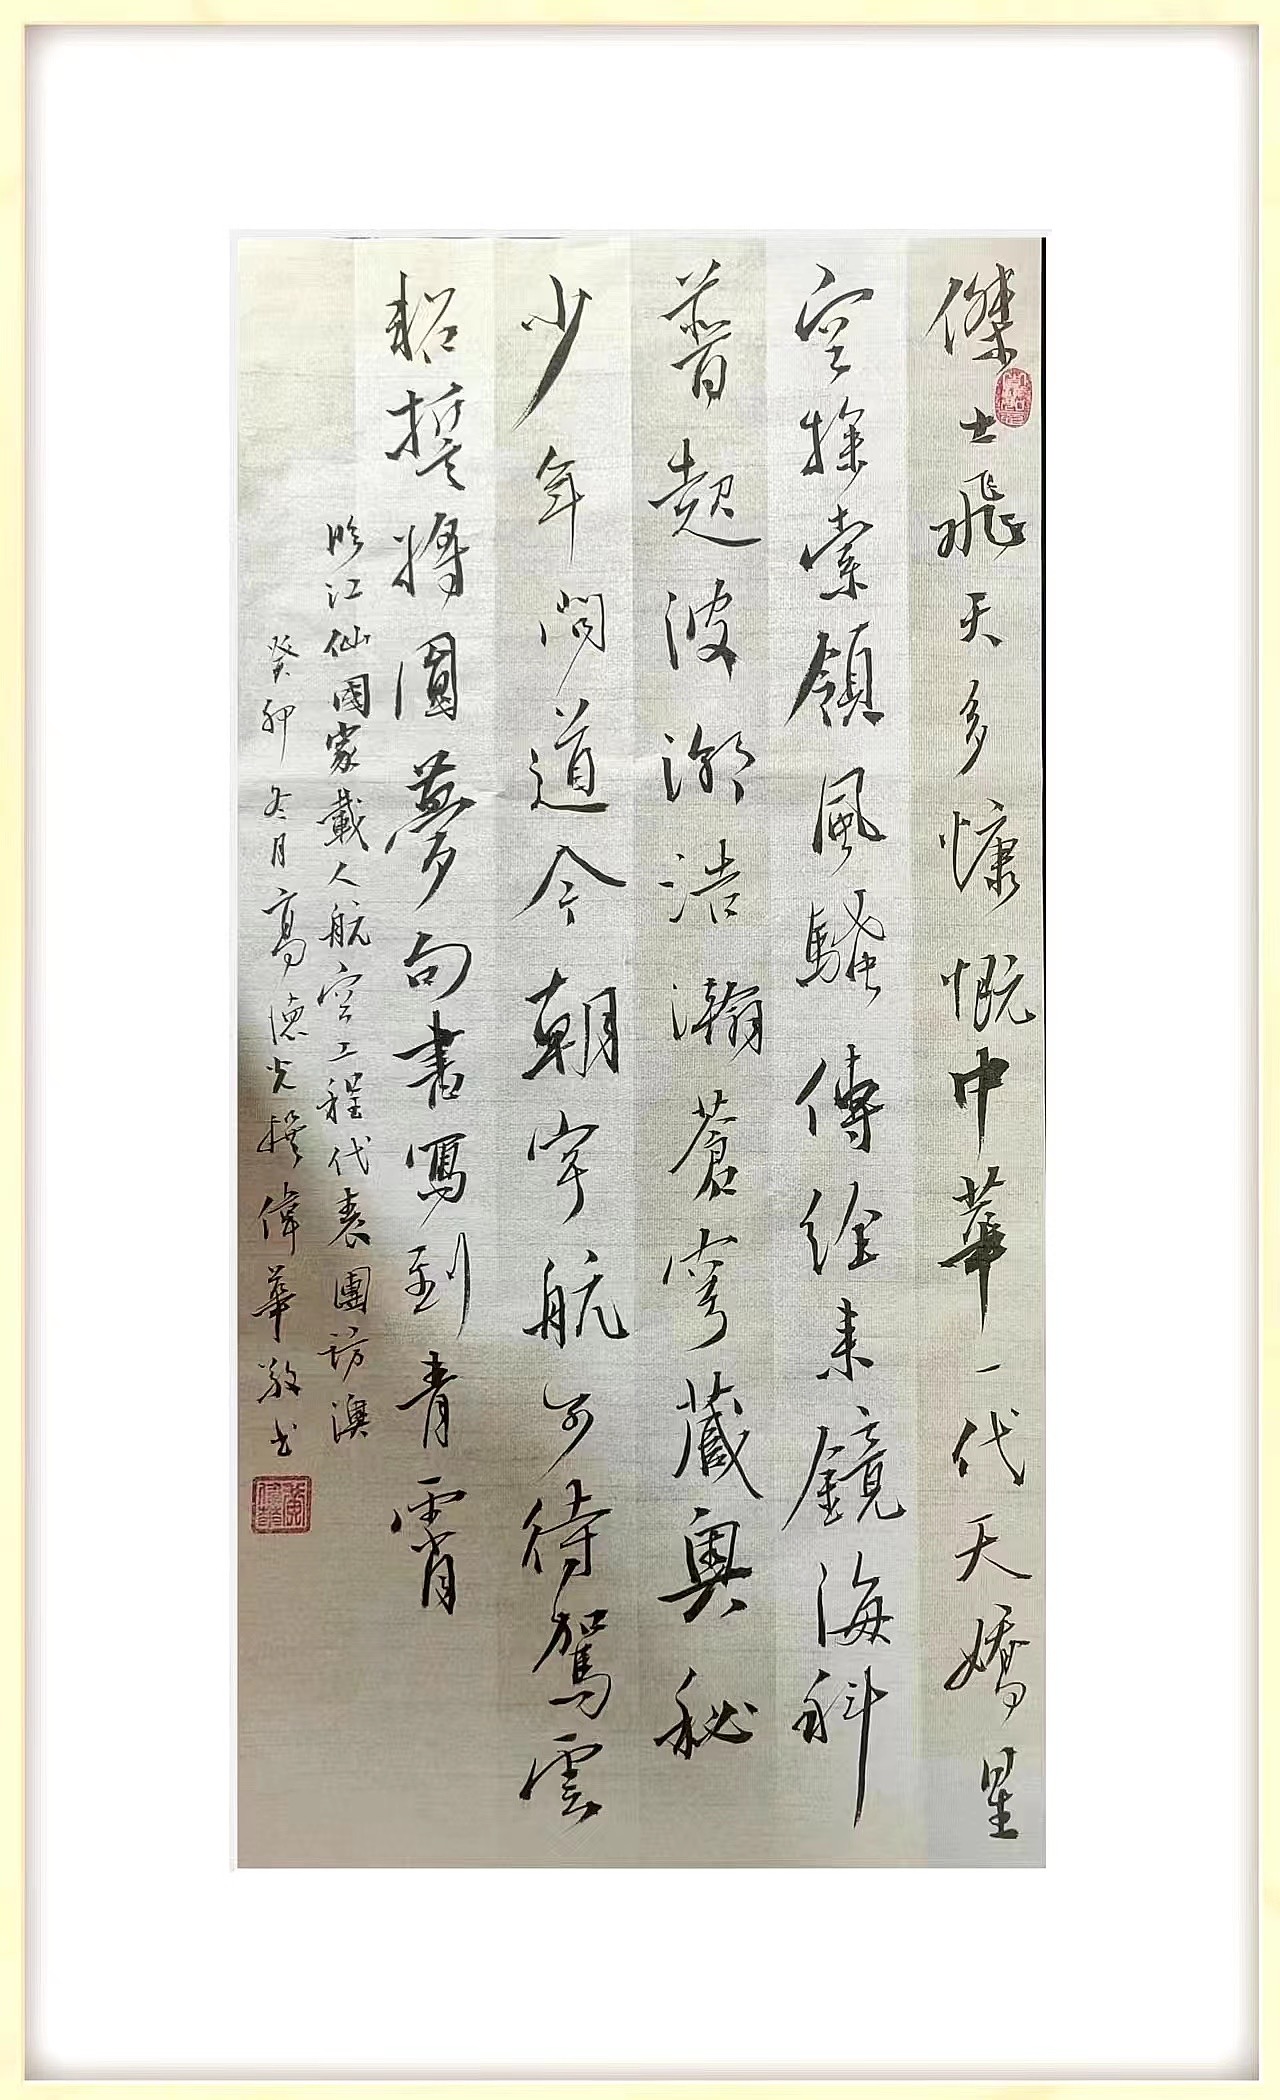 傑士飛天多慷慨中華一代天嬌星
空探索領風騷傳經來鏡海科
普起波潮浩瀚蒼穹藏奥秘
少年問道今朝宇航可待駕雲
軺誓將圓夢句書寫到青霄
臨江仙國家載人航空工程代表團訪澳
癸卯冬月高德光撰偉華敬书